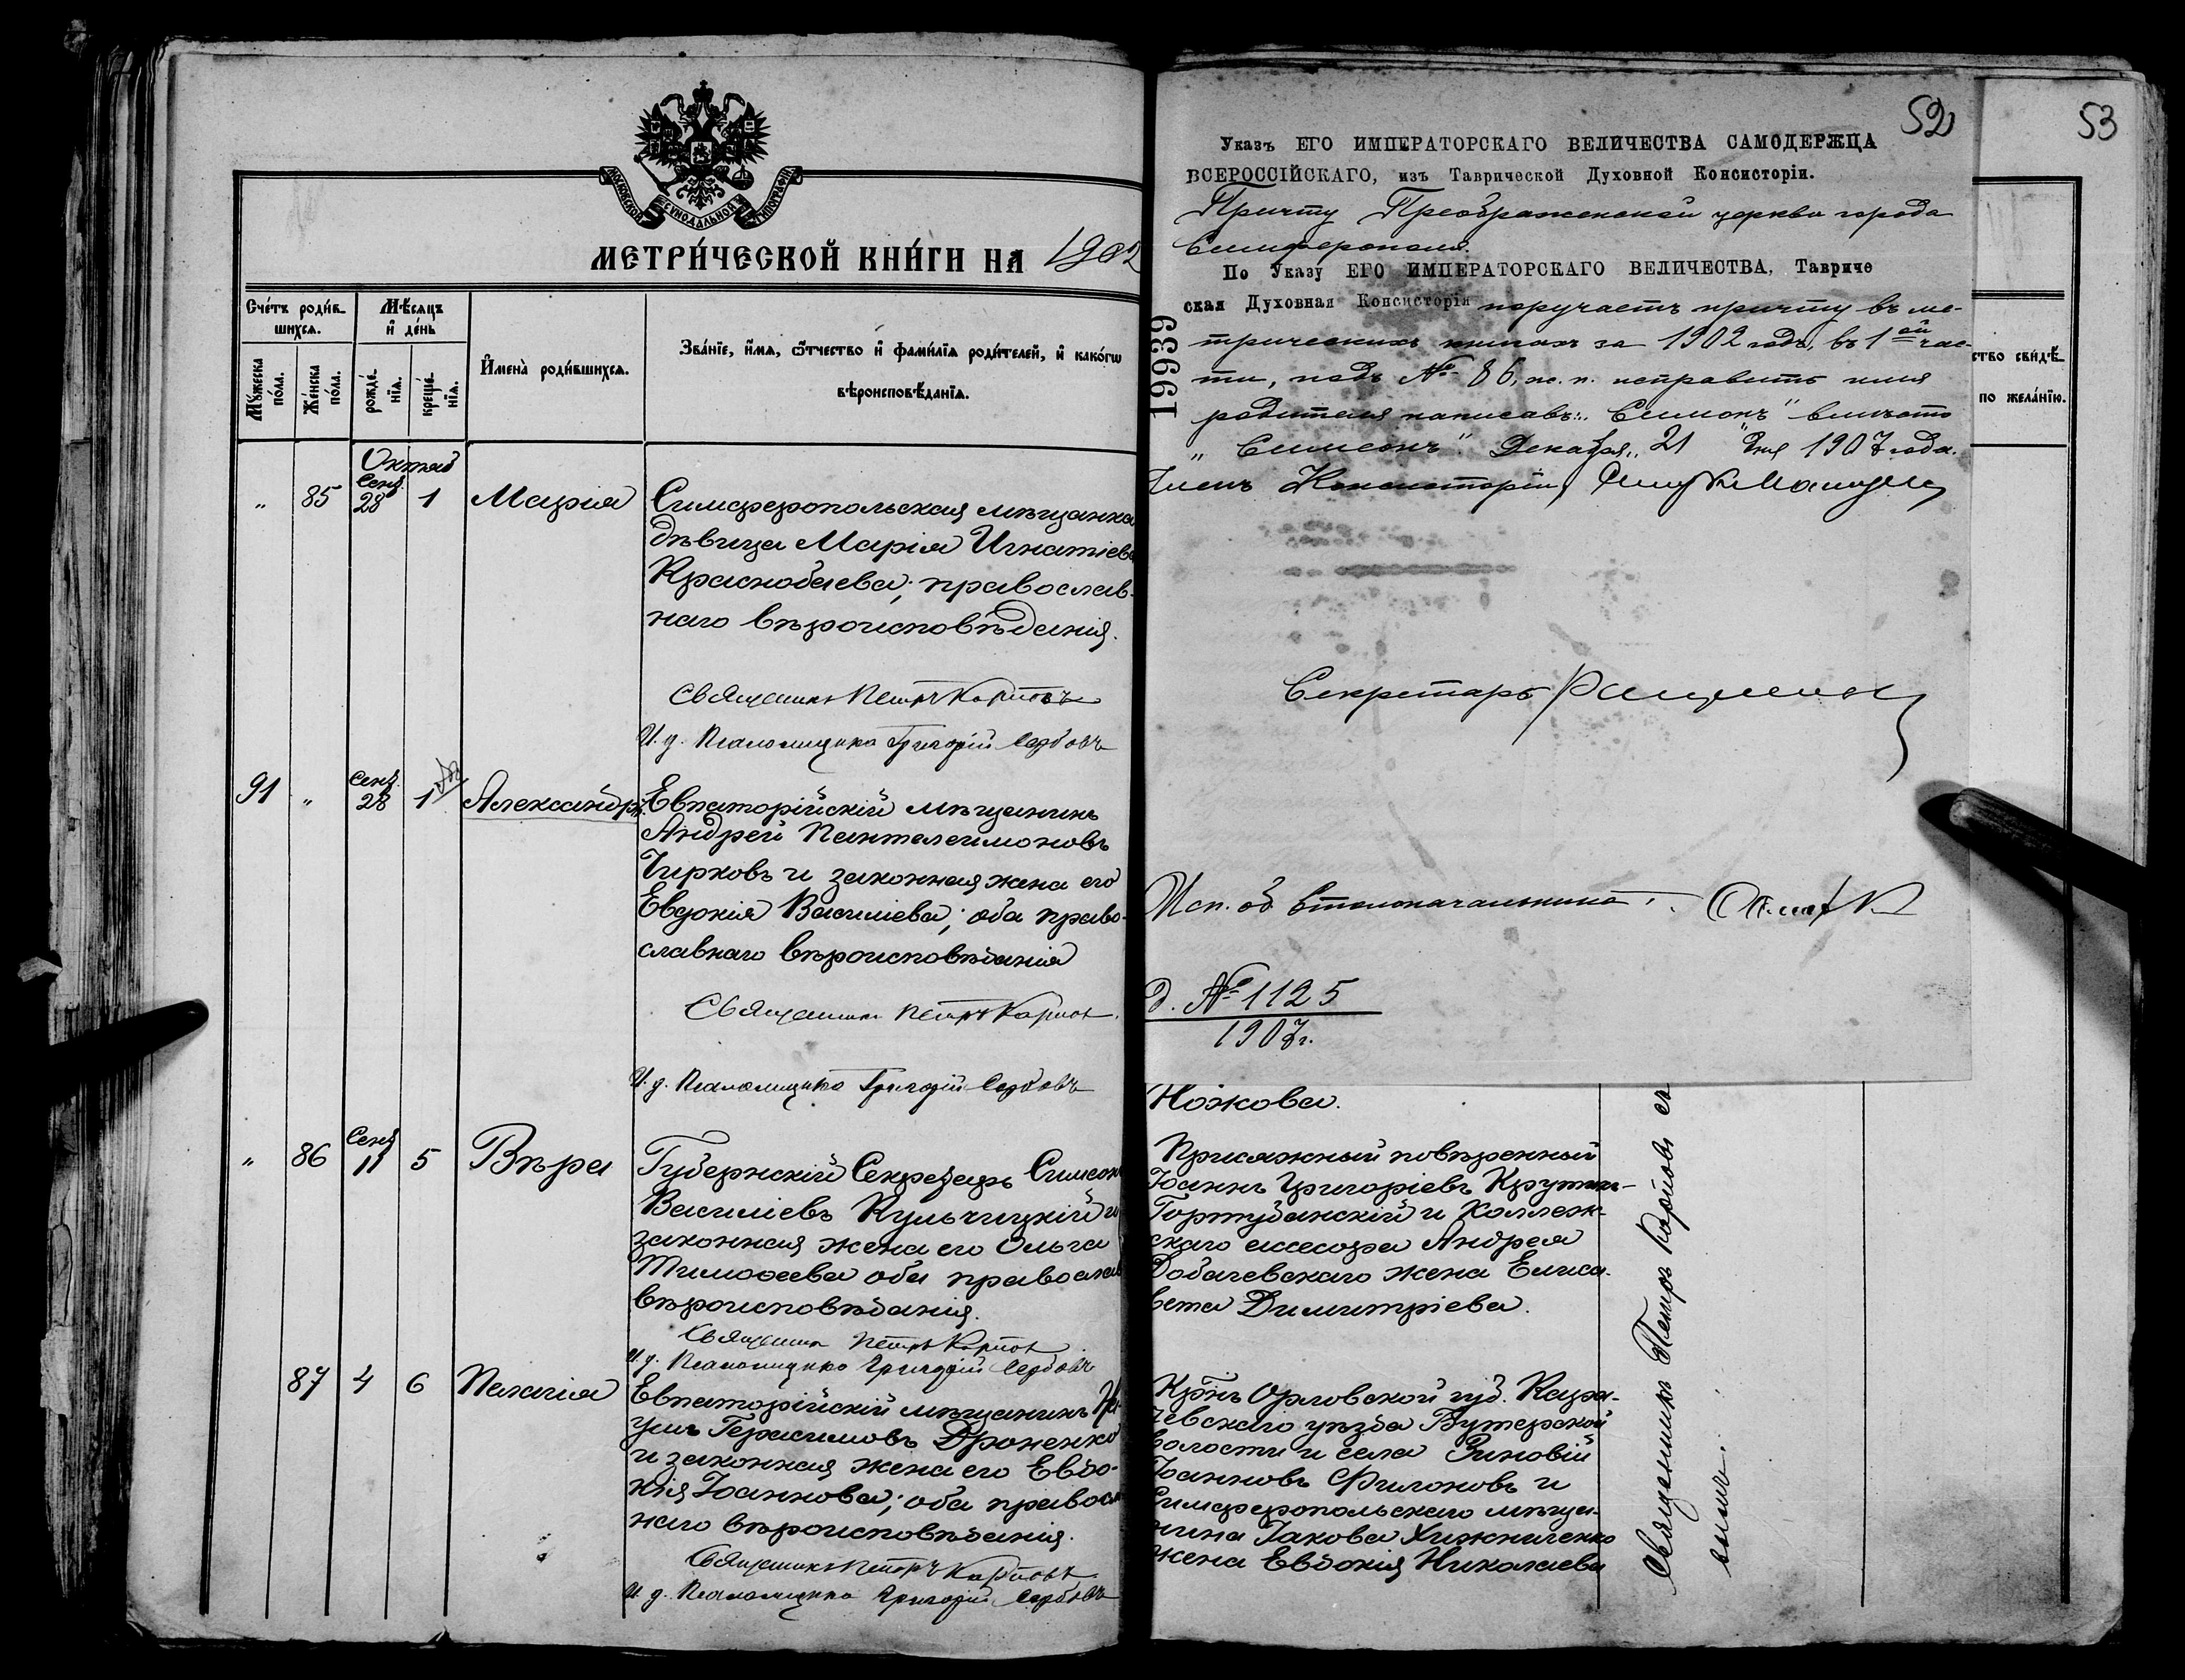 МОСКОВСКОЙ СѴНОДАЛЬНОЙ ТИПОГРАФІИ
МЕТРИ́ЧЕСКОЙ КНИ́ГИ НА 1902
Счéтъ роди́в-
шихся.
Мѣсяцъ
и де́нь
Мꙋ́жеска
по́ла.
Же́нска
по́ла.
рожде́-
нїя.
креще́-
нїя.
И҆мена̀ роди́вшихся.
Зва́нїе, и҆́мя, ѻ҆́тчество и҆ фами́лїя роди́телей, и҆ како́гѡ
вѣроисповѣ́данїя.
Октяб
" 85 Сент. 28 1 Марія
Симферопольская мѣщанка
дѣвица Марія Игнатіева
Краснобаева; православ-
наго вѣроисповѣданія.
Священникъ Петръ Карповъ
И. д. Псаломщика Григорій Сербовъ
91 " Сент. 28 1 Александръ
Евпаторійскій мѣщанинъ
Андрей Пантелеимоновъ
Чирковъ и законная жена его
Евдокія Василіева; оба право-
славнаго вѣроисповѣданія
Священникъ Петръ Карповъ
И. д. Псаломщика Григорій Сербовъ
" 86 Сент. 11 5 Вѣра
Губернскій Секретарь Симеонъ
Василіевъ Кульчицкій и
законная жена его Ольга
Тимоѳеева оба православ
вѣроисповѣданія.
Священникъ Петръ Карповъ
И. д. Псаломщика Григорій Сербовъ
87 4 6 Пелагія
Евпаторійскій мѣщанинъ
Герасимовъ Дроненко
и законная жена его Евдо-
кія Іоаннова; оба правосл
наго вѣроисповѣданія.
Священникъ Петръ Карповъ
И. д. Псаломщика Григорій Сербовъ
52
53
Указъ ЕГО ИМПЕРАТОРСКАГО ВЕЛИЧЕСТВА САМОДЕРЖЦА
ВСЕРОССІЙСКАГО, изъ Таврической Духовной Консисторіи.
Причту Преображенской церкви города
Симферополя.
По Указу ЕГО ИМПЕРАТОРСКАГО ВЕЛИЧЕСТВА, Тавриче
ская Духовная Консисторія поручаетъ причту въ ме-
трическихъ книгахъ за 1902 годъ, въ 1ой час-
ти, подъ № 86, ж. п. исправить имя
родителя написавъ: „Симонъ" вмѣсто
„Симеонъ". Декабря „21" дня 1907 года.
19939
Членъ Консисторіи,
Секретарь
Исп. об. Столоначальника
д. № 1125
1907 г.
ство свидѣ-
по жела́нїю.
Ножкова.
Присяжный повѣренный
Іоаннъ Григоріевъ
и Коллеж-
скаго ассесора Андрея
Добачевскаго жена Елиса-
вета Димитріева.
Крнъ Орловской губ. Кара-
чевскаго уѣзда Бутерской
волости и села Зиновій
Іоанновъ Филоновъ и
Симферопольскаго мѣща-
нина Іакова Хижниченко
жена Евдокія Николаева
Священникъ Петръ Карповъ съ